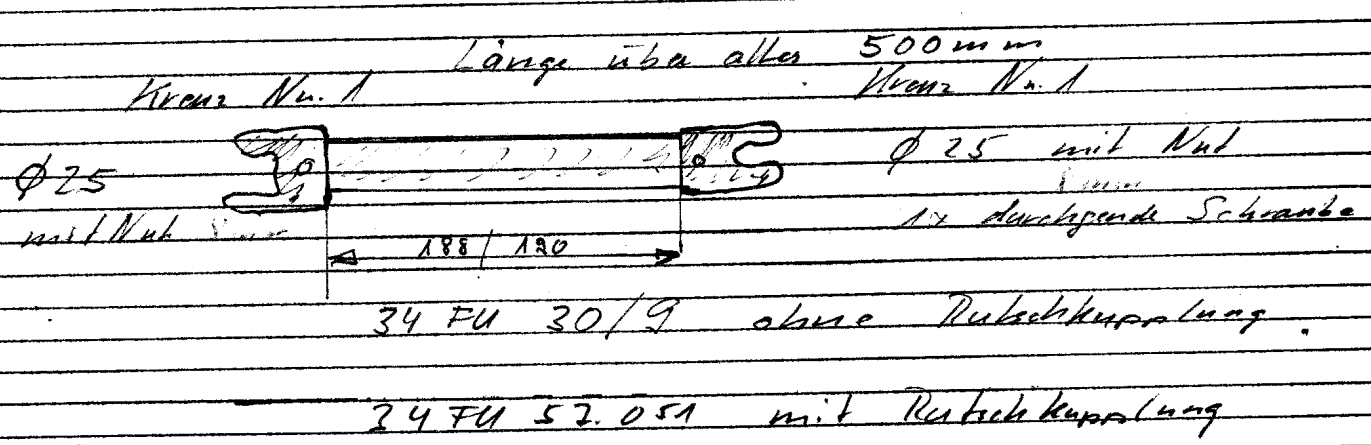 Länge über alles 500mm
Kreuz Nr. 1
Kreuz Nr. 1
Ø 25
mit Nut 8mm
Ø 25 mit Nut
8mm
1x durchgende Schraube
188 / 190
34 FU 30/9 ohne Rutschkupplung
34 FU 57.051 mit Rutschkupplung